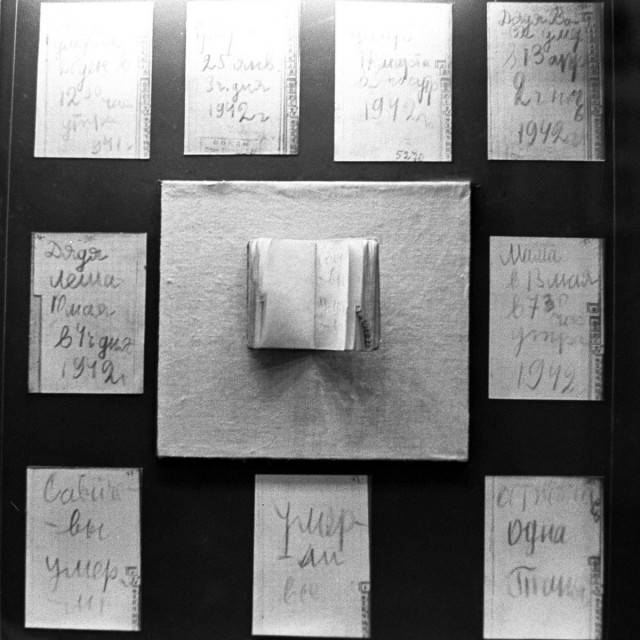 12 30 час
утра
1941 г
25 янв.
3 ч дня
1942 г
17 марта
1942 г
Дядя Вася
умер
в 13 апр
2 ч ночь
1942 г
Дядя
Леша
10 мая
в 4 ч дня
1942 г
Мама
в 13 мая
в 7 30 час
утра
1942
Савиче-
-вы
умер-
ли
умер-
ли
все
Осталась
одна
Таня